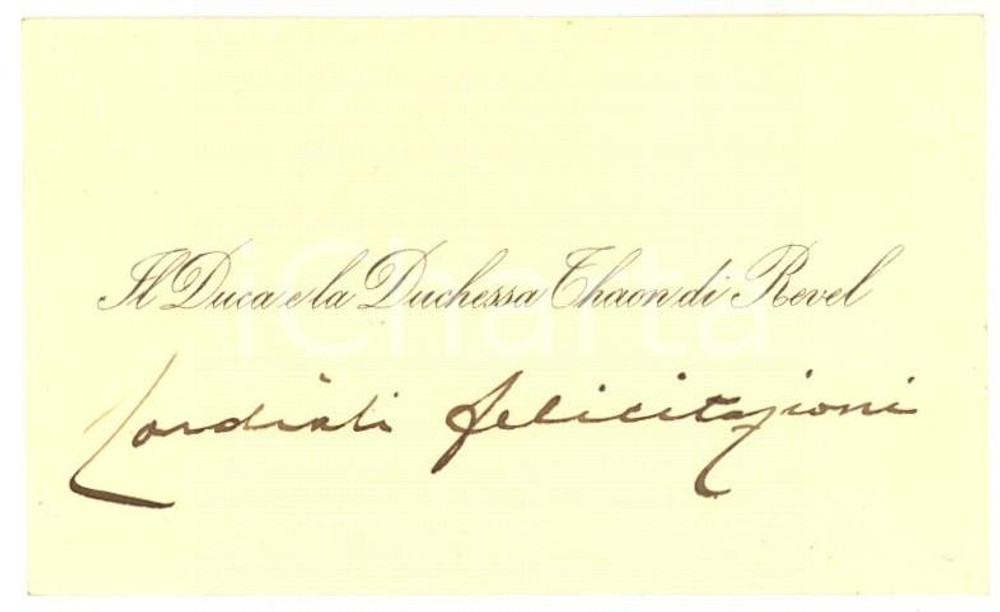 Il Duca e la Duchessa Thaon di Revel
iCharta
Cordiali felicitazioni